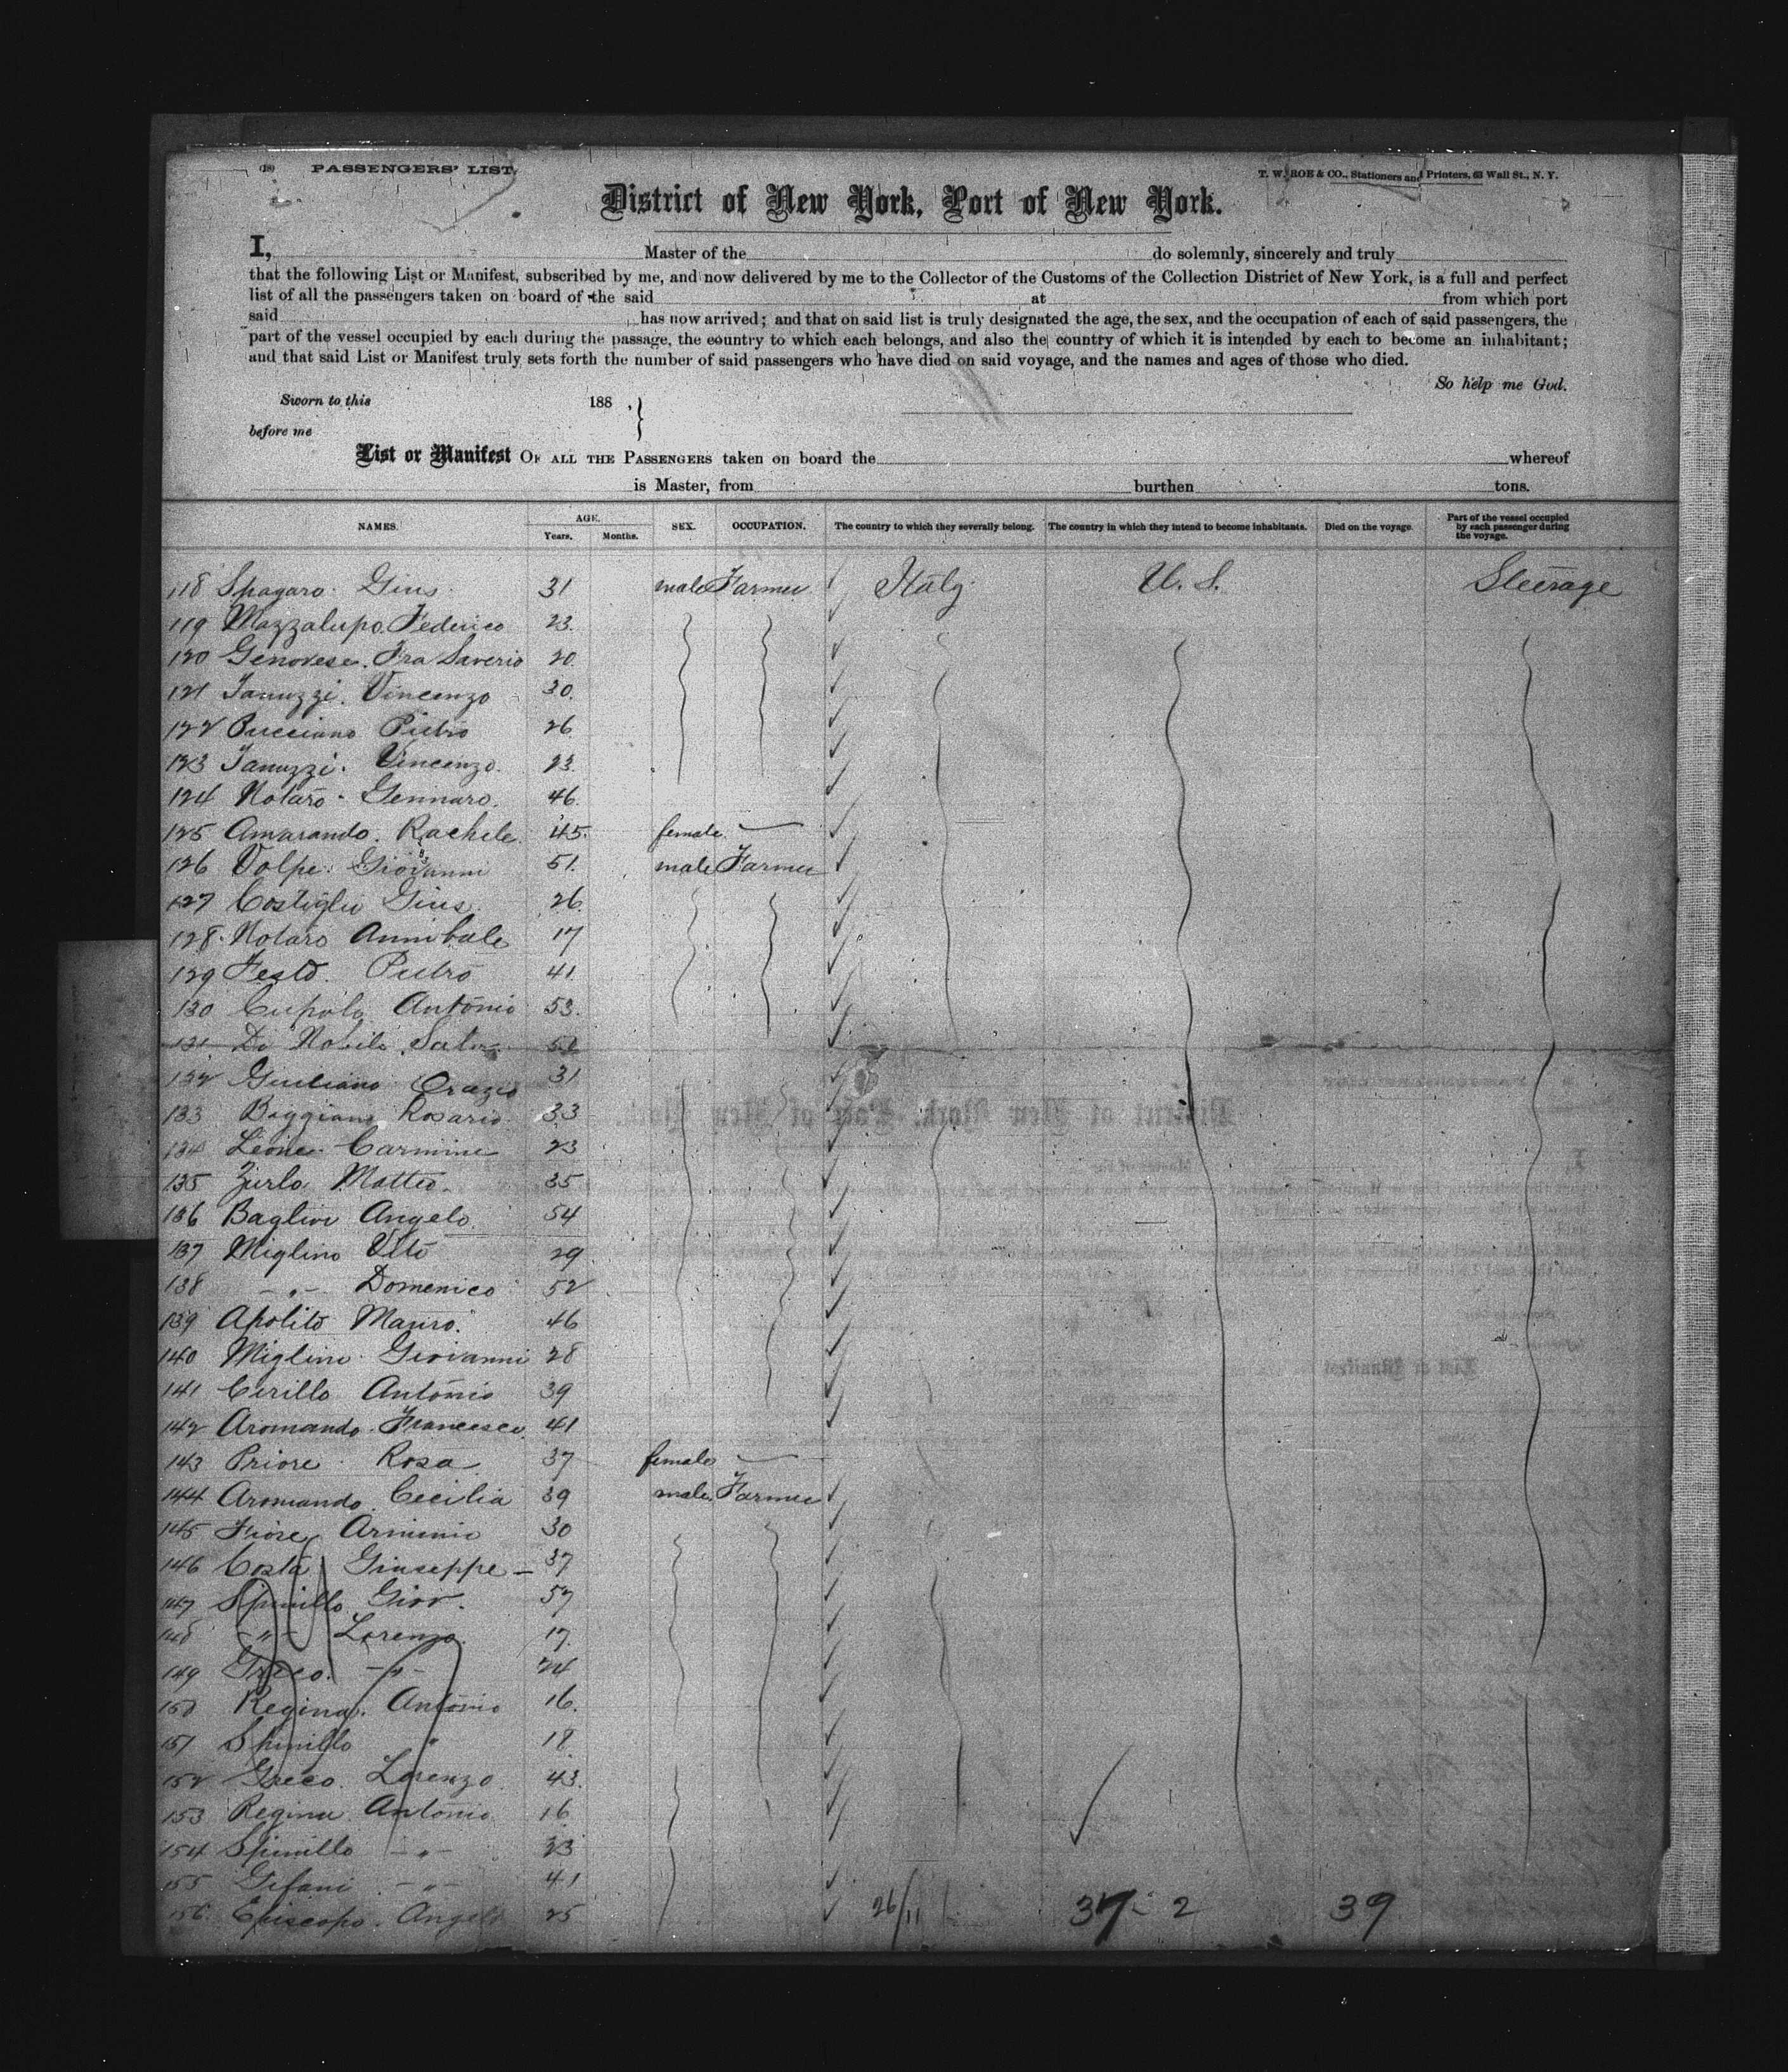 (18) PASSENGERS' LIST.
T. W. ROE & CO., Stationers and Printers, 63 Wall St., N. Y.
District of New York, Port of New York.
I, Master of the do solemnly, sincerely and truly
that the following List or Manifest, subscribed by me, and now delivered by me to the Collector of the Customs of the Collection District of New York, is a full and perfect
list of all the passengers taken on board of the said at from which port
said has now arrived; and that on said list is truly designated the age, the sex, and the occupation of each of said passengers, the
part of the vessel occupied by each during the passage, the country to which each belongs, and also the country of which it is intended by each to become an inhabitant;
and that said List or Manifest truly sets forth the number of said passengers who have died on said voyage, and the names and ages of those who died.
So help me God.
Sworn to this 188 , }
before me
List or Manifest OF ALL THE PASSENGERS taken on board the whereof
is Master, from burthen tons.
NAMES. AGE. Years. Months. SEX. OCCUPATION. The country to which they severally belong. The country in which they intend to become inhabitants. Died on the voyage. Part of the vessel occupied by each passenger during the voyage.
118 Spagaro Gius 31 male Farmer Italy U. S. Steerage
119 Mazzalupo Federico 23.
120 Genovese. Fra Saverio 20.
121 Januzzi. Vincenzo 30.
122 Pucciano Pietro 26
123 Januzzi. Vincenzo. 23.
124 Notaro Gennaro. 46.
125 Amarando. Rachele 45. female —
126 Volpe Giovanni 51. male Farmer
127 Gius. 26.
128 Notaro Annibale 17
129 Festo. Pietro 41
130 Cupolo Antonio 53.
131 De Nobile 51
132 Giuliano Orazio 31
133 Rosario. 33
134 Leone Carmine 23
135 Zurlo Matteo. 35
136 Baglivi Angelo 54
137 Miglino Vito 29
138 -"- Domenico 52
139 Apolito Mauro. 46
140 Miglino Giovanni 28
141 Cirillo Antonio 39
142 Aromando Francesco. 41
143 Priore Rosa 37 female —
144 Aromando Cecilia 39 male Farmer
145 Fiore Arminio 30
146 Costa Giuseppe — 37
147 Spinillo Giov. 57
148 -"- Lorenzo. 17.
149 Greco. -"- 24
150 Regina. Antonio 16.
151 Spinillo " 18
152 Greco. Lorenzo 43.
153 Regina Antonio 16
154 Spinillo -"- 23
155 Gifani -"- 41
156 Episcopo. Angelo 25
26/11 37 - 2 39